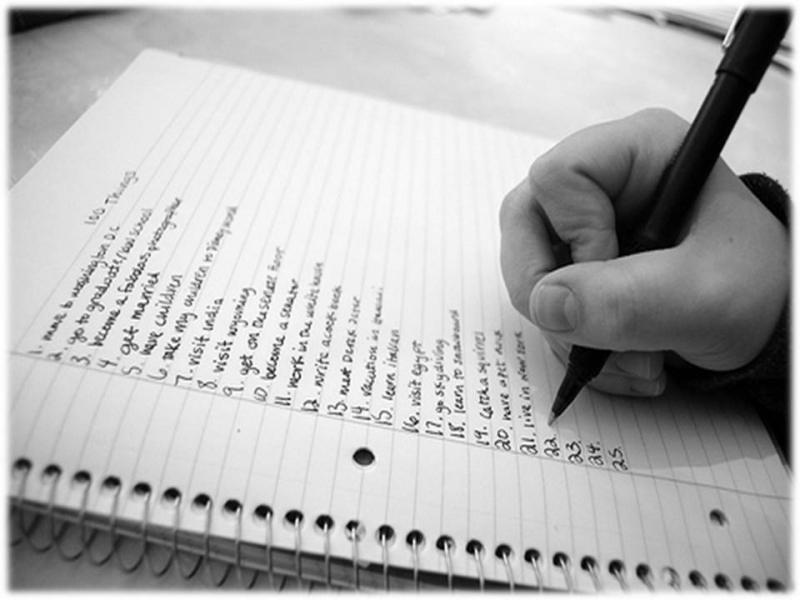 100 Things
1. move to washington D.C
2. go to graduate/law school
3. become a fabulous photographer
4. get married
5. have children
6. take my children to disney world
7. visit India
8. visit wyoming
9. get on the senate floor
10. become a senator
11. work in the white house
12. write a cook book
13. meet Derek Jeter
14. vacation in
15. learn italian
16. visit egypt
17. go sky diving
18. learn to snowboard
19. catch a squirrel
20. have a pet
21. live in New York
22.
23.
24.
25.